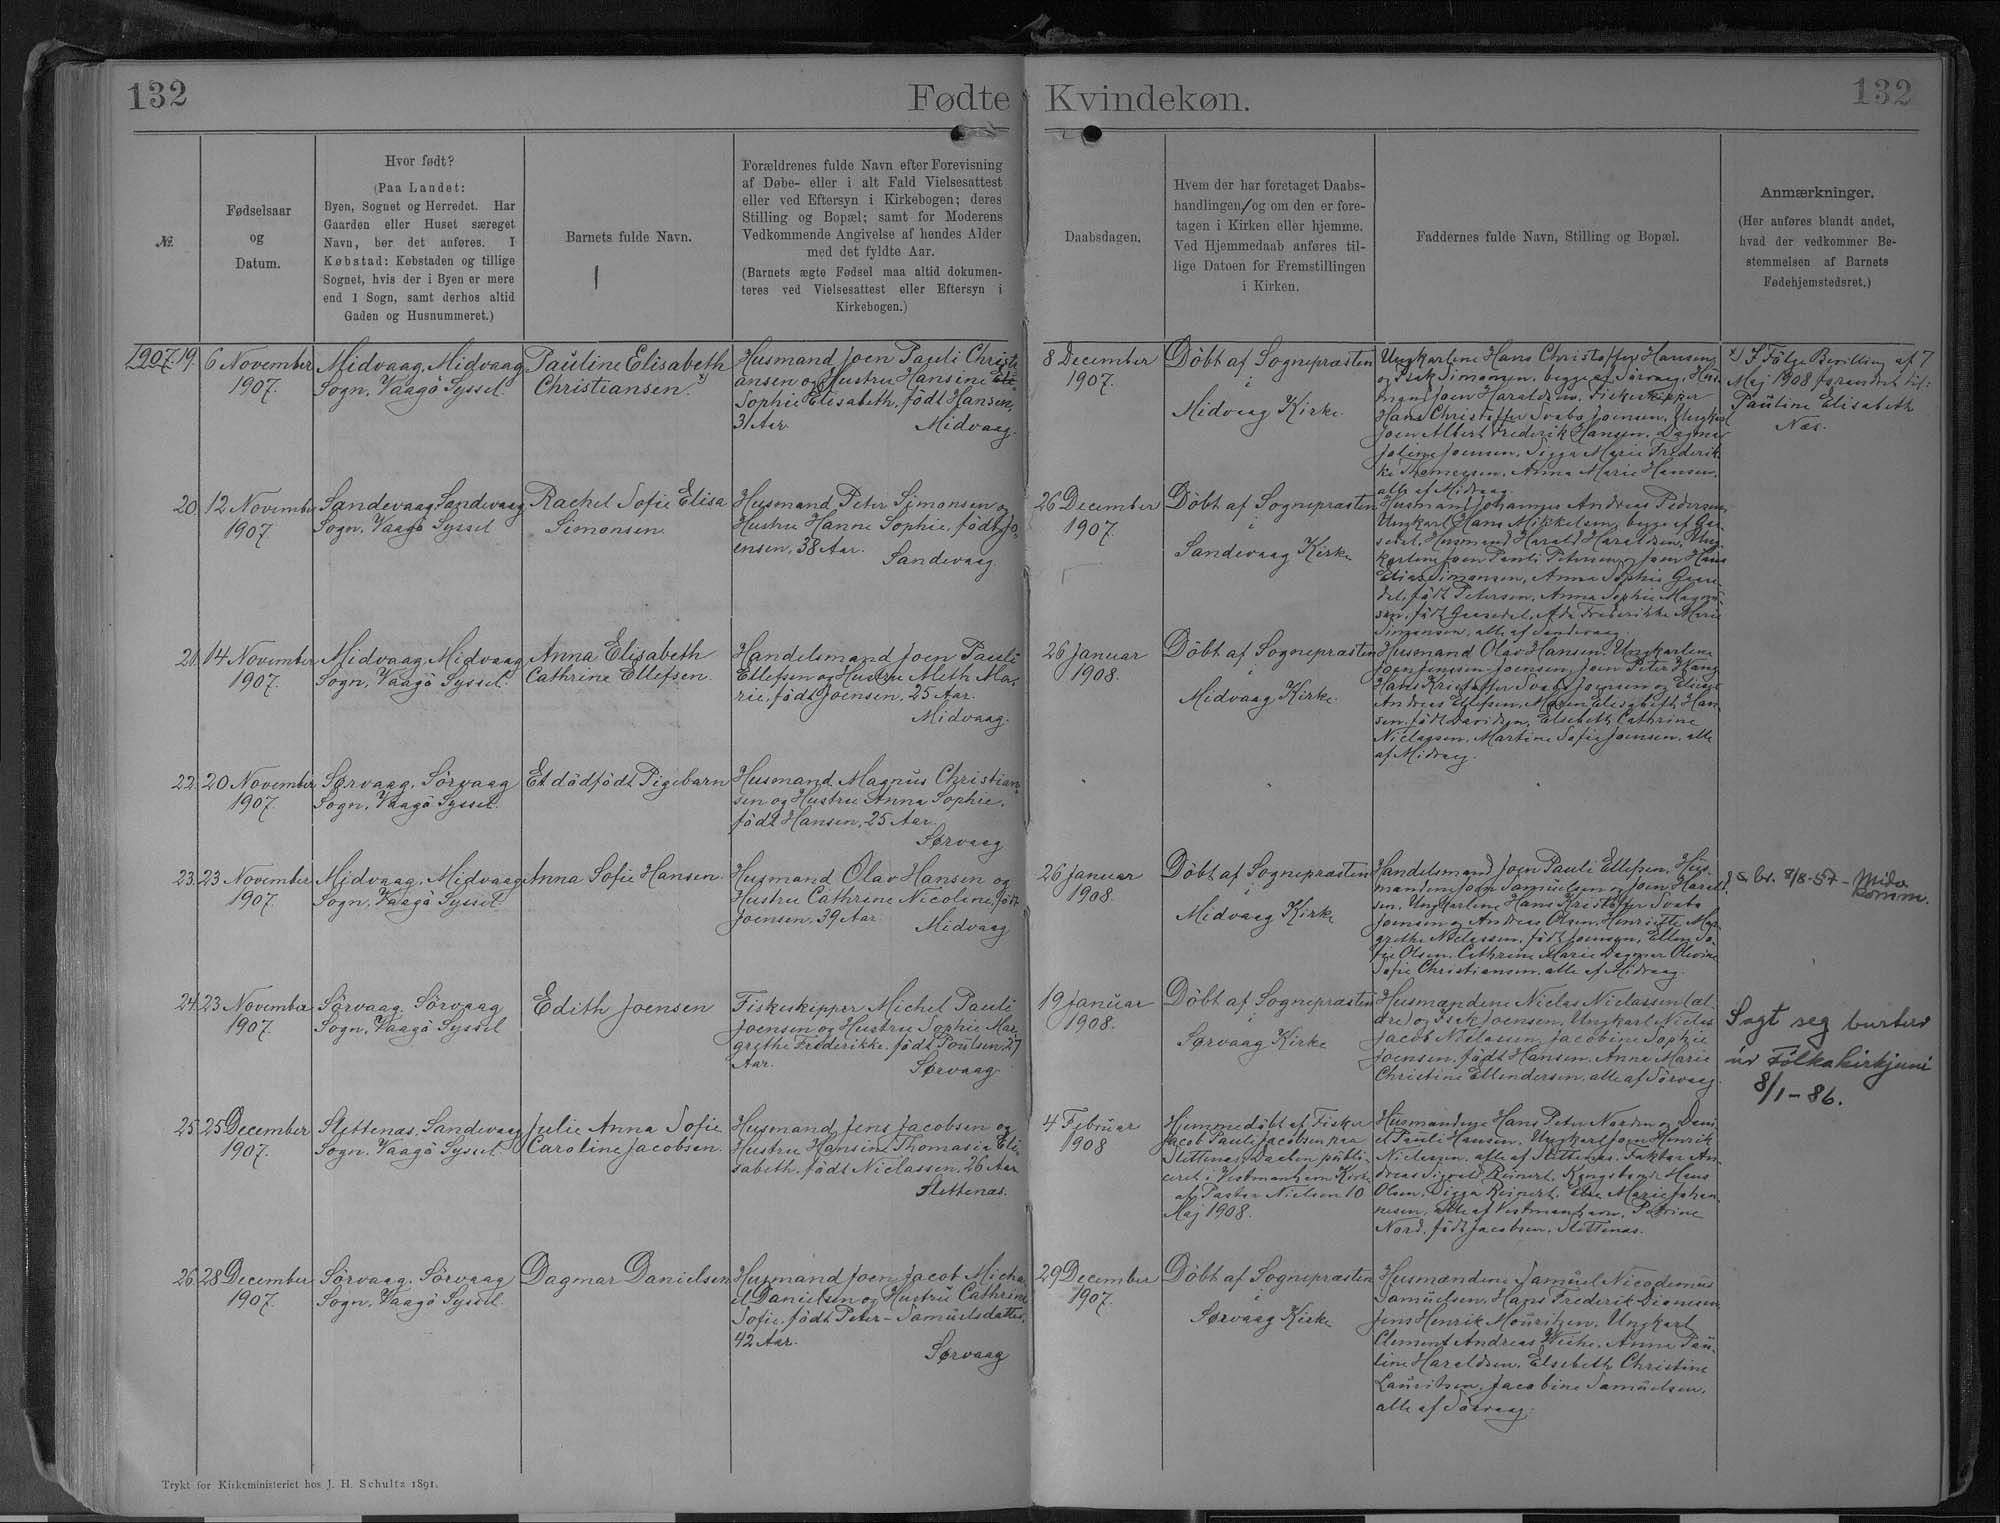 132
Fødte Kvindekøn.
132
№
Fødselsaar
og
Datum.
Hvor født?
(Paa Landet:
Byen, Sognet og Herredet. Har
Gaarden eller Huset særeget
Navn, bør det anføres. I
Købstad: Købstaden og tillige
Sognet, hvis der i Byen er mere
end 1 Sogn, samt derhos altid
Gaden og Husnummeret.)
Barnets fulde Navn.
Forældrenes fulde Navn efter Forevisning
af Døbe- eller i alt Fald Vielsesattest
eller ved Eftersyn i Kirkebogen; deres
Stilling og Bopæl; samt for Moderens
Vedkommende Angivelse af hendes Alder
med det fyldte Aar.
(Barnets ægte Fødsel maa altid dokumen-
teres ved Vielsesattest eller Eftersyn i
Kirkebogen.)
Daabsdagen.
Hvem der har foretaget Daabs-
handlingen/og om den er fore-
tagen i Kirken eller hjemme.
Ved Hjemmedaab anføres til-
lige Datoen for Fremstillingen
i Kirken.
Faddernes fulde Navn, Stilling og Bopæl.
Anmærkninger.
(Her anføres blandt andet,
hvad der vedkommer Be-
stemmelsen af Barnets
Fødehjemstedsret.)
1907. 19.
6 November
1907.
Midvaag, Midvaag
Sogn, Vaagö Syssel.
Pauline Elisabeth
Christiansen. x)
Husmand Joen Pauli Christi-
ansen og Hustru Hansine
Sophie Elisabeth, födt Hansen,
31 Aar.
Midvaag.
8 December
1907.
Döbt af Sognepræsten
i
Midvaag Kirke.
Ungkarlene Hans Christoffer Hansen
og Isak Simonsen, begge af Sørvaag, Hus-
mand Joen Haraldsen, Fiskeskipper
Hans Christoffer Svabo Joensen, Ungkarl
Joen Albert Frederik Hansen, Dagmar
Joline Joensen, Sigga Marie Frederik-
ke Thomesen, Anna Marie Hansen,
alle af Midvaag.
x) I Følge Bevilling af 7
Maj 1908 forandret til:
Pauline Elisabeth
Næs.
20.
12 November
1907.
Sandevaag, Sandevaag
Sogn, Vaagö Syssel
Rachel Sofie Elisa
Simonsen.
Husmand Peter Simonsen og
Hustru Hanne Sophie, födt Jo-
ensen, 38 Aar.
Sandevaag.
26 December
1907.
Döbt af Sognepræsten
i
Sandevaag Kirke.
Husmand Johannes Andreas Pedersen,
Ungkarl Hans Mikkelsen, begge af Gaa-
sedal, Husmand Harald Haraldsen, Ung-
karlene Joen Pauli Petersen og Joen Hans
Elias Simonsen, Anna Sophie Gaase-
dal, födt Petersen, Anna Sophie Magnu-
sen, födt Gaasedal, Ada Frederikke Marie
Simonsen, alle af Sandevaag.
21.
14 November
1907.
Midvaag, Midvaag
Sogn, Vaagö Syssel.
Anna Elisabeth
Cathrine Ellefsen.
Handelsmand Joen Pauli
Ellefsen og Hustru Meth Ma-
rie, födt Joensen, 25 Aar.
Midvaag.
26 Januar
1908.
Döbt af Sognepræsten
i
Midvaag Kirke.
Husmand Olav Hansen, Ungkarlene
Joen Joensen, Joen Peter
Hans Kristoffer Svabo Joensen og
Andreas Ellefsen, Maren Elisabeth Han-
sen, födt Davidsen, Elsebeth Cathrine
Niclassen, Martine Sofie Joensen, alle
af Midvaag.
22.
20 November
1907.
Sørvaag, Sörvaag
Sogn, Vaagö Syssel.
Et dödfödt Pigebarn
Husmand Magnus Christian-
sen og Hustru Anna Sophie,
födt Hansen, 25 Aar.
Sørvaag
23.
23 November
1907.
Midvaag, Midvaag
Sogn, Vaagö Syssel.
Anna Sofie Hansen.
Husmand Olav Hansen og
Hustru Cathrine Nicoline, födt
Joensen, 39 Aar.
Midvaag
26 Januar
1908.
Döbt af Sognepræsten
i
Midvaag Kirke
Handelsmand Joen Pauli Ellefsen, Hus-
mændene Joen Samuelsen og Joen Harald-
sen, Ungkarlene Hans Kristoffer Svabo
Joensen og Andreas Olsen, Henriette Mar-
grethe Niclassen, födt Joensen, Ellen So-
fie Olsen, Cathrine Marie Dagmar Olevine
Sofie Christiansen, alle af Midvaag.
br. 8/8-57 - Midv.
Komm.
24.
23 November
1907.
Sörvaag, Sörvaag
Sogn, Vaagö Syssel
Edith Joensen
Fiskeskipper Michel Pauli
Joensen og Hustru Sophie Mar-
grethe Frederikke, födt Poulsen, 27
Aar.
Sørvaag.
19 Januar
1908.
Döbt af Sognepræsten
i
Sørvaag Kirke
Husmændene Niclas Niclassen (æl-
dre) og Isak Joensen, Ungkarl Niclas
Jacob Niclassen, Jacobine Sophie
Joensen, födt Hansen, Anna Marie
Christine Ellendersen, alle af Sörvaag.
Sagt seg burtur
úr Fólkakirkjuni
8/1-86.
25.
25 December
1907.
Slettenæs, Sandevaag
Sogn, Vaagö Syssel.
Julie Anna Sofie
Caroline Jacobsen.
Husmand Jens Jacobsen og
Hustru Hansine Thomasia Eli-
sabeth, födt Niclassen, 26 Aar
Slettenæs.
4 Februar
1908
Hjemmedöbt af Fisker
Jacob Pauli Jacobsen paa
Slettenæs, Daaben publi-
ceret i Vestmanhavn Kirke
af Pastor Nielsen 10
Maj 1908.
Husmændene Hans Peter Nordn og Dani-
el Pauli Hansen, Ungkarl Joen Henrik
Niclassen, alle af Slettenæs, Faktor An-
dreas Sigvald Reinert, Kongsbonde Hans
Olsen, Sigga Reinert, Else Marie Johan-
nesen, alle af Vestmanhavn, Petrine
Nord, födt Jacobsen, Slettenæs.
26.
28 December
1907.
Sörvaag, Sörvaag
Sogn, Vaagö Syssel.
Dagmar Danielsen
Husmand Joen Jacob Micha-
el Danielsen og Hustru Cathrine
Sofie, födt Peter-Samuelsdatter,
42 Aar.
Sørvaag
29 December
1907.
Döbt af Sognepræsten
i
Sørvaag Kirke
Husmændene Samuel Nicodemus
Samuelsen, Hans Frederik Dionesen,
Jens Henrik Mouritzen, Ungkarl
Clement Andreas Weihe, Anne Pau-
line Haraldsen, Elsebeth Christine
Lauritsen, Jacobine Samuelsen,
alle af Sörvaag.
Trykt for Kirkeministeriet hos J. H. Schultz 1891.